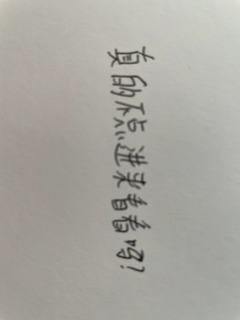 真的不点进来看看吗!